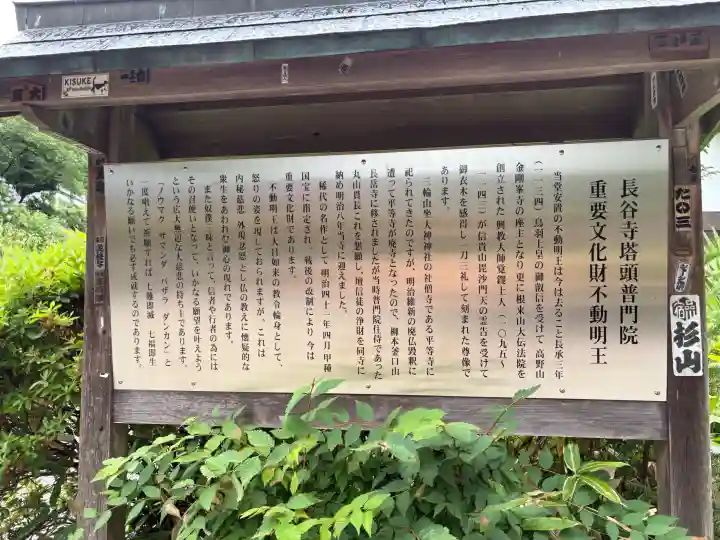 長谷寺塔頭普門院
重要文化財不動明王
当堂安置の不動明王は今は去ること長承三年
(一一三四)鳥羽上皇の御叡信を受けて 高野山
金剛峯寺の座主となり更に根来山大伝法院を
創立された 興教大師覚鑁上人(一〇九五〜
一一四三)が信貴山毘沙門天の霊告を受けて
御衣木を感得し一刀三礼して刻まれた尊像で
あります。
三輪山坐大神神社の社僧寺である平等寺に
祀られてきたのですが、明治維新の廃仏毀釈に
遭って平等寺が廃寺となったので、柳本釜口山
長岳寺に移されましたが当時普門院住侍であった
丸山貫長これを懇願し、壇信徒の浄財を同寺に
納め明治八年当寺に迎えました。
稀代の名作として 明治四十二年四月 甲種
国宝に指定され 戦後の改制により 今は
重要文化財であります。
不動明王は大日如来の教令輪身として、
怒りの姿を現しておられますが、これは
内秘慈悲 外現忿怒 として仏の教えに懐疑的な
衆生をあわれむ御心の現れであります。
また奴僕三昧と言って、信者や行者の為には
その召使いとなって、いかなる願望を叶えよう
という広大無辺な大慈悲の持ち主であります。
「ノウマク サマンダ バザラ ダンカン」と
一度唱えて祈願すれば 七難即滅 七福即生
いかなる願いでも必ず成就するのであります。
KISUKE
杉山